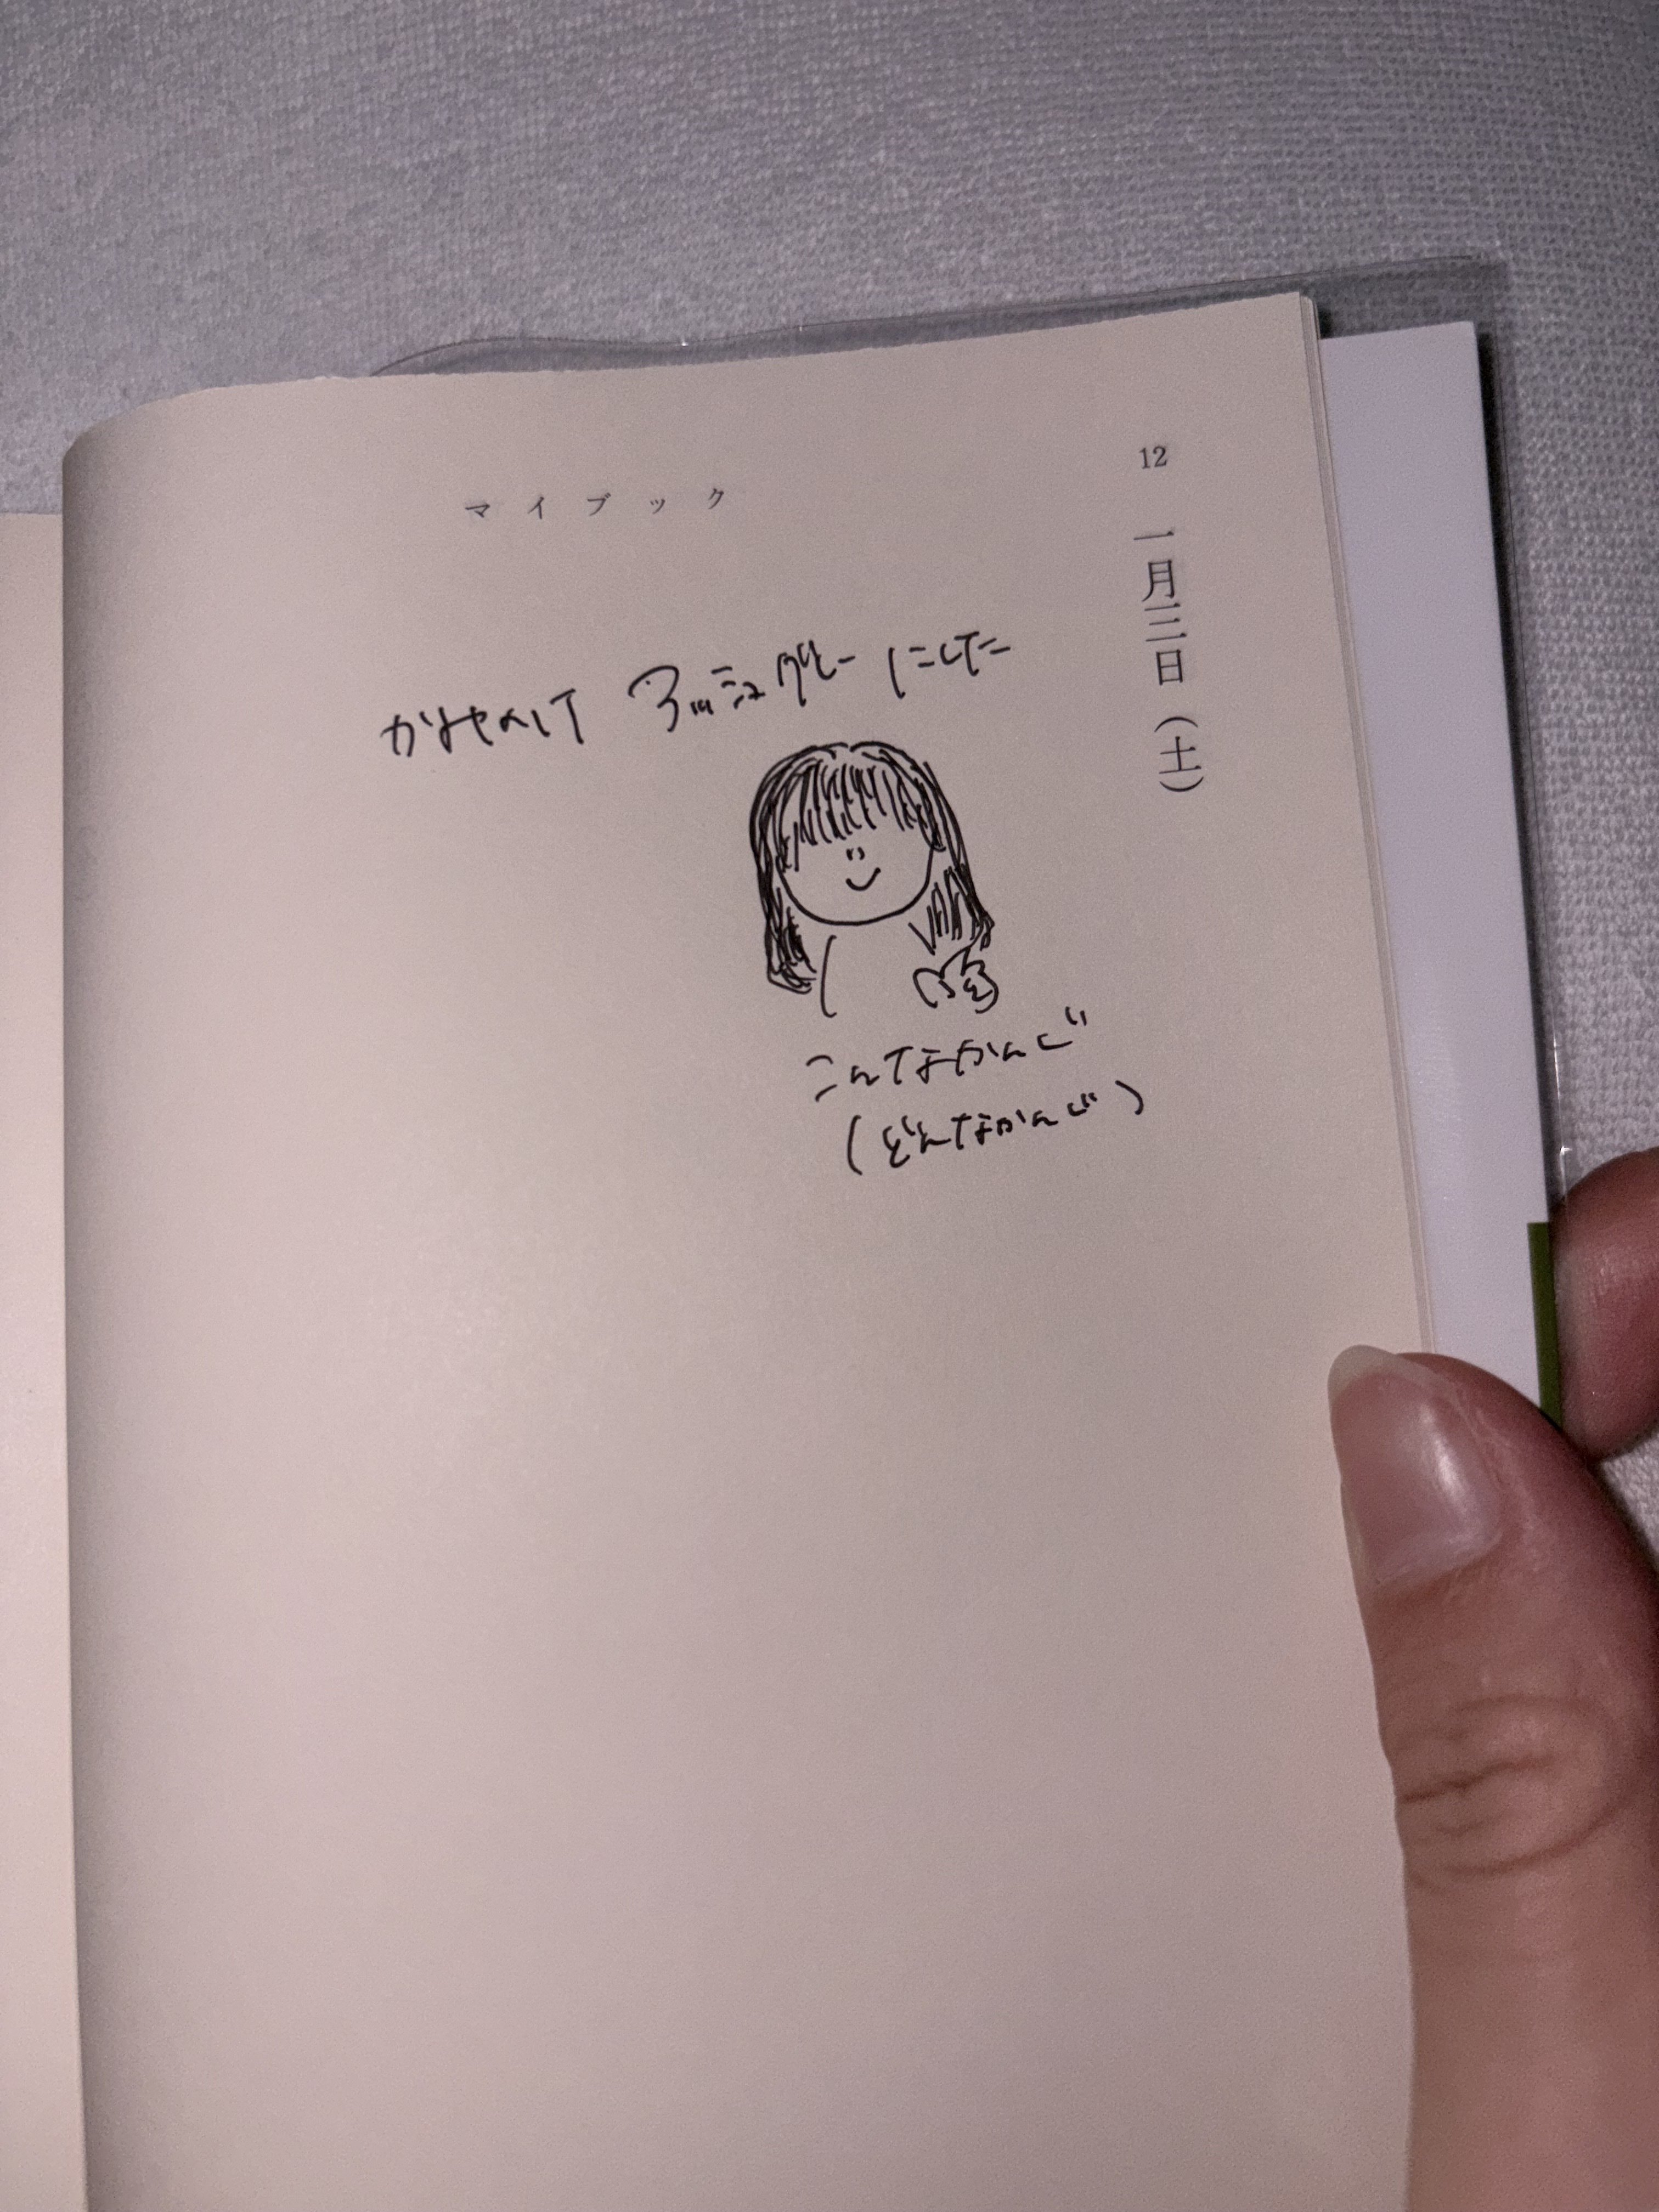 12 一月三日(土)
マイブック
アッシュグレーにした
こんなかんじ
(どんなかんじ)